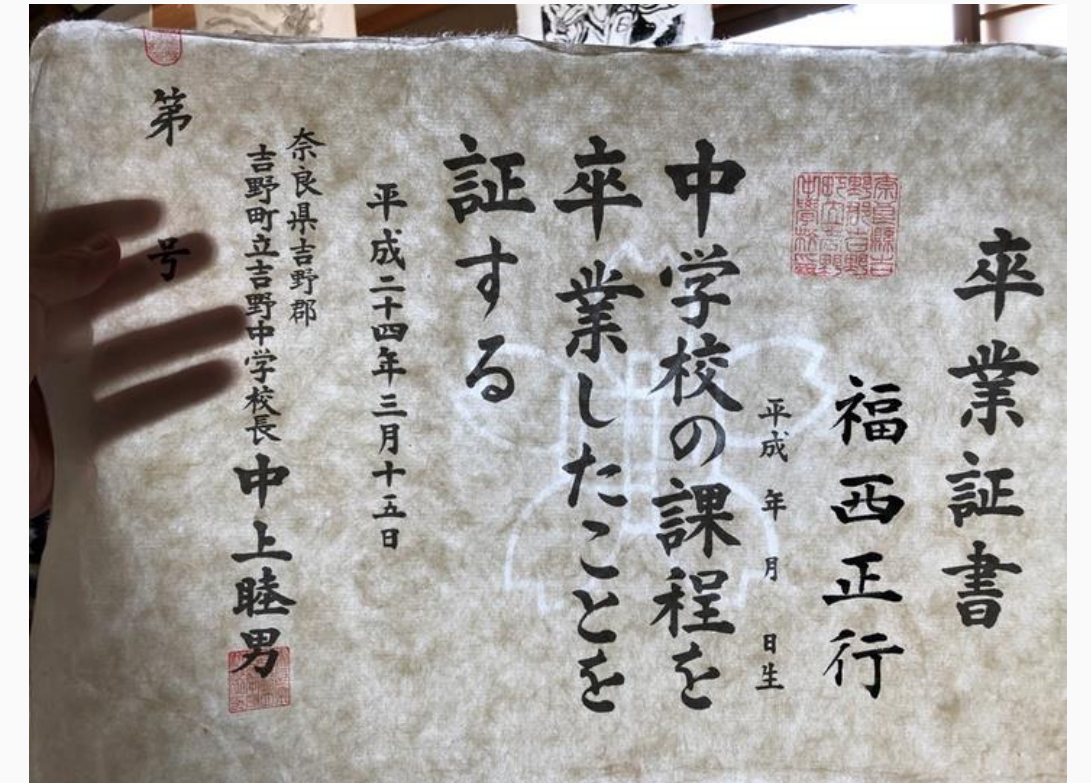 卒業証書
福西正行
平成 年 月 日生
中学校の課程を
卒業したことを
証する
平成二十四年三月十五日
奈良県吉野郡
吉野町立吉野中学校長 中上睦男
第 号